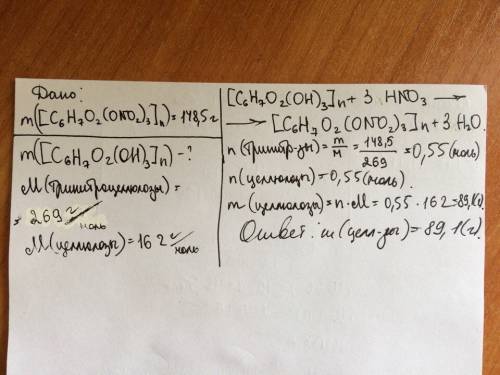 Дано:
m([C6H7O2(ONO2)3]n) = 148,5 г
m([C6H7O2(OH)3]n) - ?
M(тринитроцеллюлозы) =
= 269 г/моль
M(целлюлозы) = 162 г/моль
[C6H7O2(OH)3]n + 3 HNO3 →
→ [C6H7O2(ONO2)3]n + 3 H2O.
n(тринитр-зы) = m/M = 148,5/269 = 0,55 (моль)
n(целлюлозы) = 0,55 (моль).
m(целлюлозы) = n · M = 0,55 · 162 = 89,1(г).
Ответ: m(целл-зы) = 89,1(г).